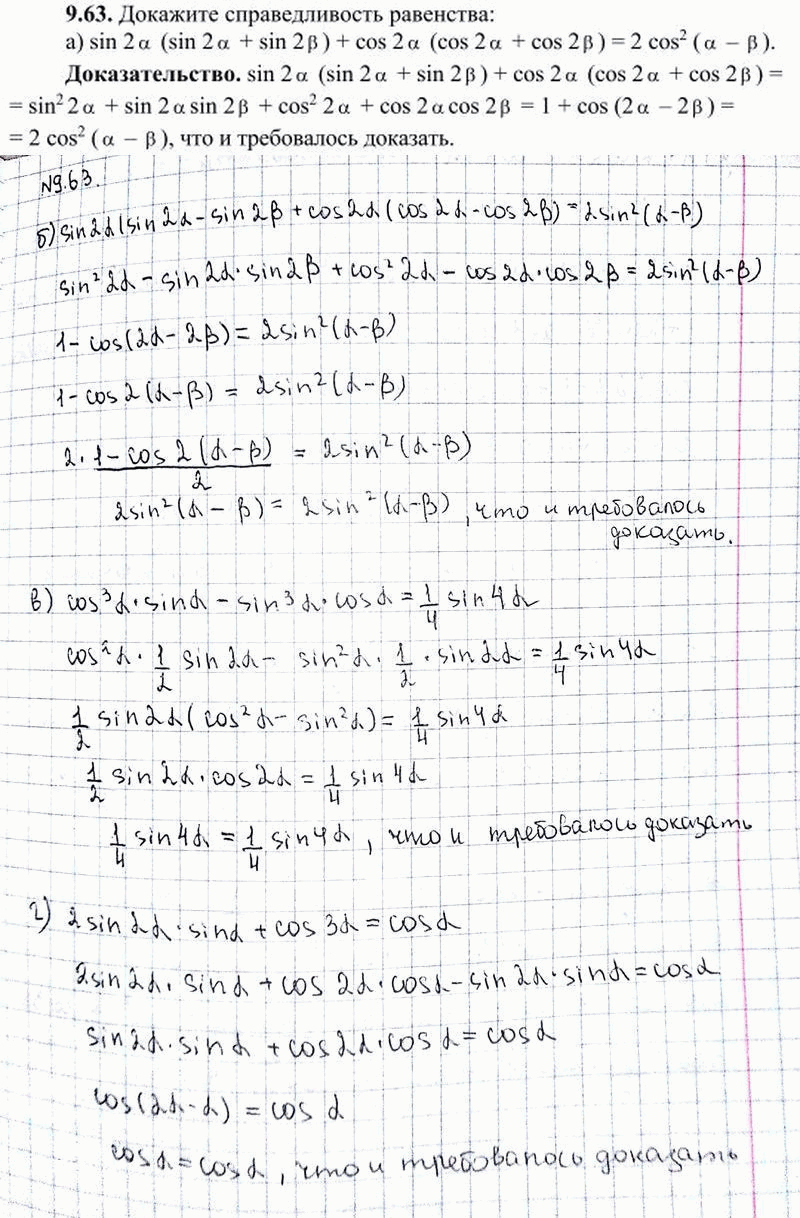 9.63. Докажите справедливость равенства:
а) sin 2α (sin 2α + sin 2β) + cos 2α (cos 2α + cos 2β) = 2 cos² (α − β).
Доказательство. sin 2α (sin 2α + sin 2β) + cos 2α (cos 2α + cos 2β) =
= sin² 2α + sin 2α sin 2β + cos² 2α + cos 2α cos 2β = 1 + cos (2α − 2β) =
= 2 cos² (α − β), что и требовалось доказать.
N9.63.
б) sin2α(sin2α - sin2β + cos2α(cos2α - cos2β) = 2sin²(α-β)
sin²2α - sin2α·sin2β + cos²2α - cos2α·cos2β = 2sin²(α-β)
1 - cos(2α - 2β) = 2sin²(α-β)
1 - cos2(α-β) = 2sin²(α-β)
2 · (1 - cos2(α-β))/2 = 2sin²(α-β)
2sin²(α - β) = 2sin²(α-β), что и требовалось
доказать.
в) cos³α·sinα - sin³α·cosα = 1/4 sin4α
cos²α · 1/2 sin2α - sin²α · 1/2 · sin2α = 1/4 sin4α
1/2 sin2α(cos²α - sin²α) = 1/4 sin4α
1/2 sin2α·cos2α = 1/4 sin4α
1/4 sin4α = 1/4 sin4α, что и требовалось доказать
г) 2sin2α·sinα + cos3α = cosα
2sin2α·sinα + cos2α·cosα - sin2α·sinα = cosα
sin2α·sinα + cos2α·cosα = cosα
cos(2α-α) = cosα
cosα = cosα, что и требовалось доказать